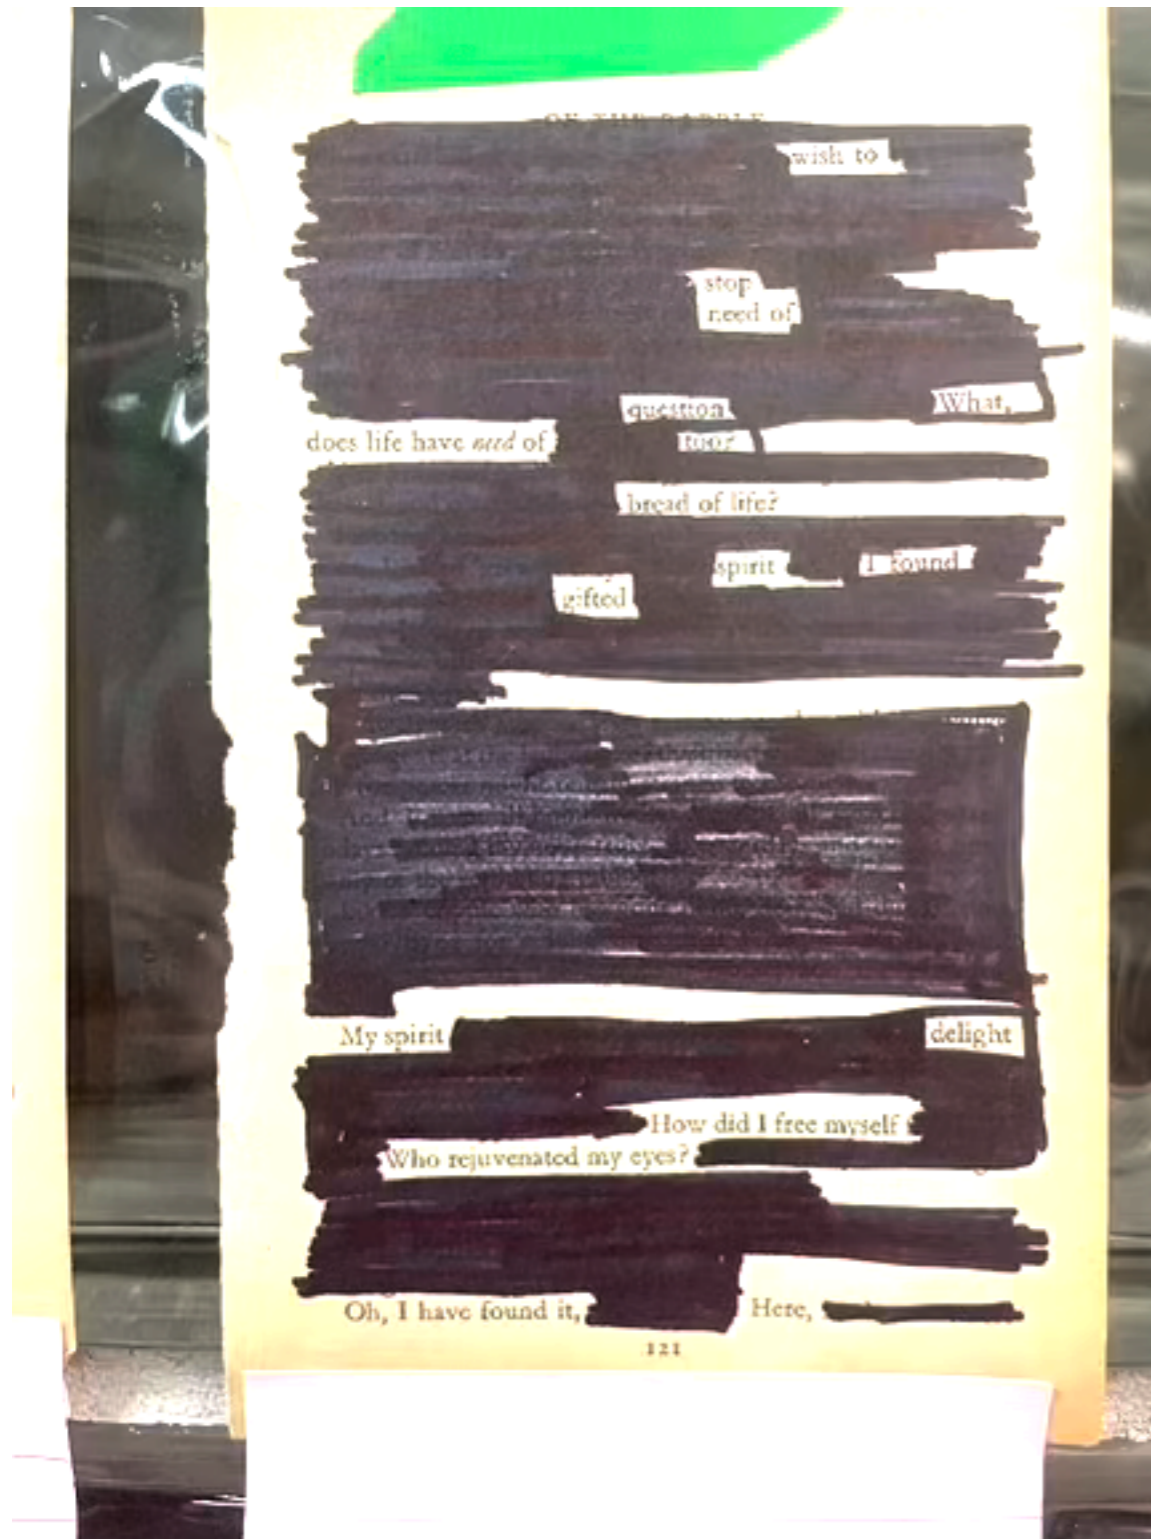 OF THE RABBLE
wish to
stop
need of
question What,
does life have need of too?
bread of life?
spirit I found
gifted
My spirit delight
How did I free myself
Who rejuvenated my eyes?
Oh, I have found it, Here,
121